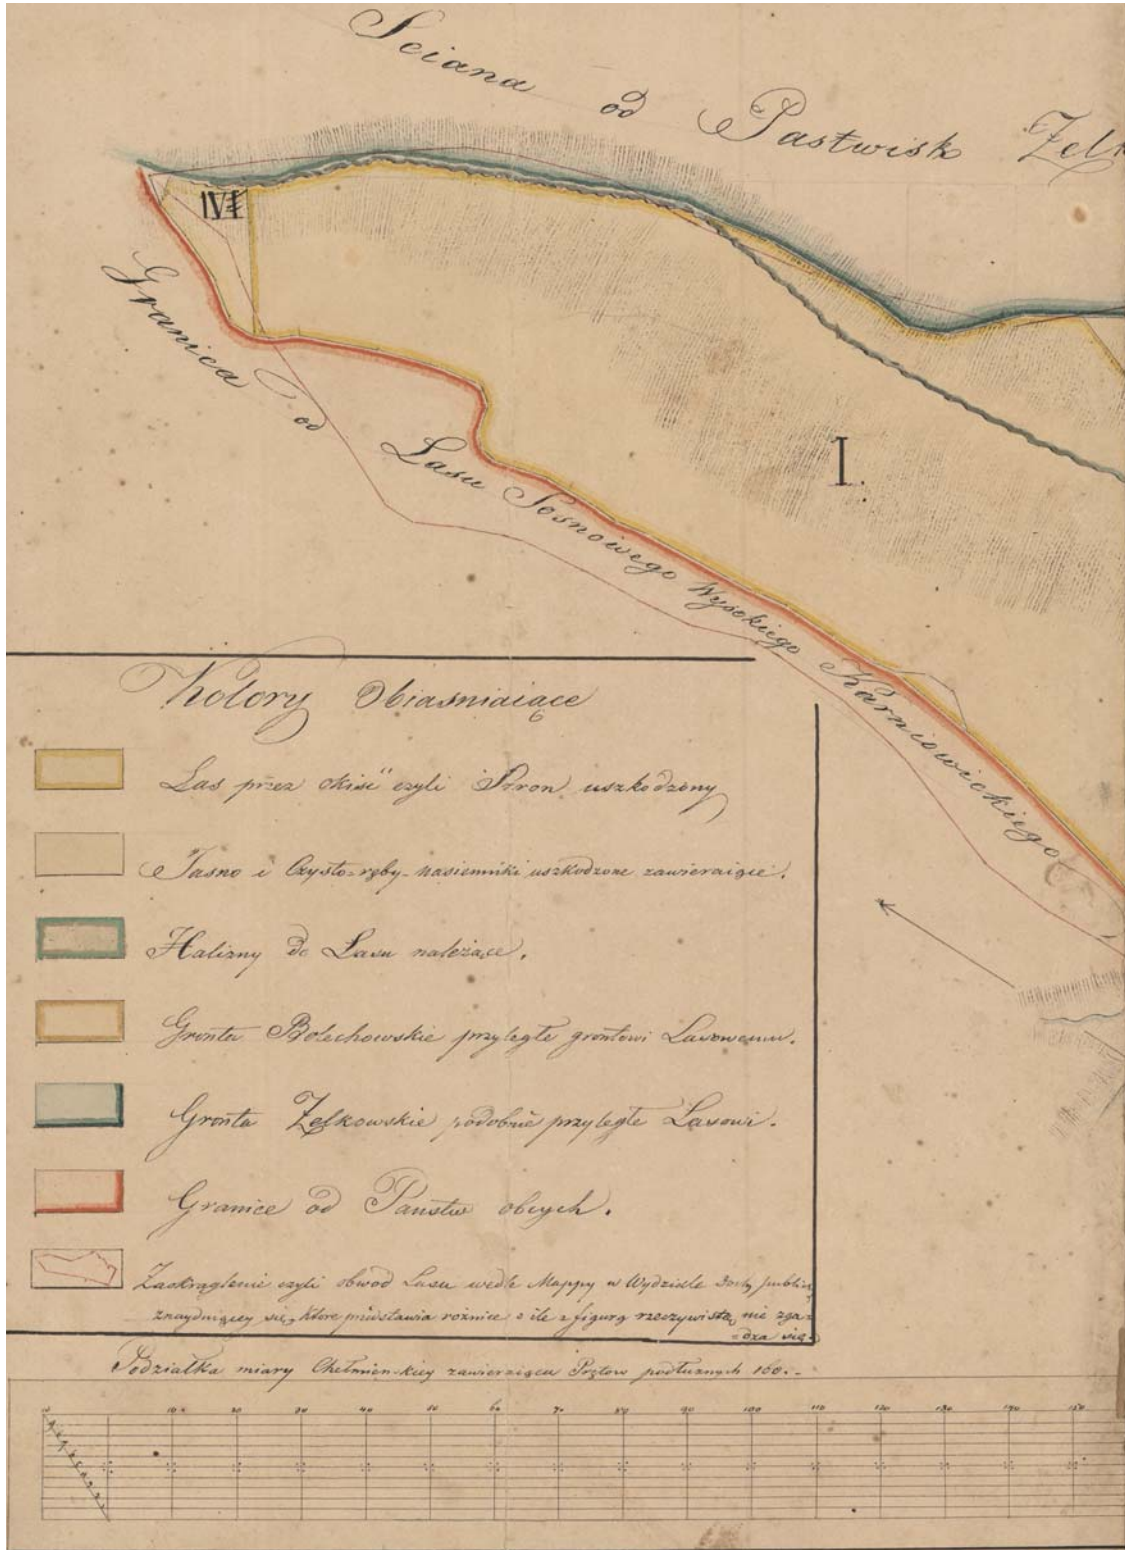 Sciana od Pastwisk Zelk
IVI
Granica od Lasu Sosnowego Wysokiego Karniowickiego
I.
Kolory Obiasniaiące
Las przez okiść czyli Szron uszkodzony
Jasno i Czysto-ręby-nasienniki uszkodzone zawieraiące.
Halizny do Lasu należące.
Gronta Bolechowskie przyległe grontowi Lasowemu.
Gronta Zelkowskie podobnie przyległe Lasowi.
Granice od Państw obcych.
Zaokrąglenie czyli obwod Lasu wedle Mappy w Wydziale Doch. publicz
znayduiącey się, które przedstawia rożnice o ile z figurą rzeczywistą nie zga=
=dza się.
Podziałka miary Chełmińskiey zawieraiąca Prętow podłużnych 160.-
10 10 20 30 40 50 60 70 80 90 100 110 120 130 140 150